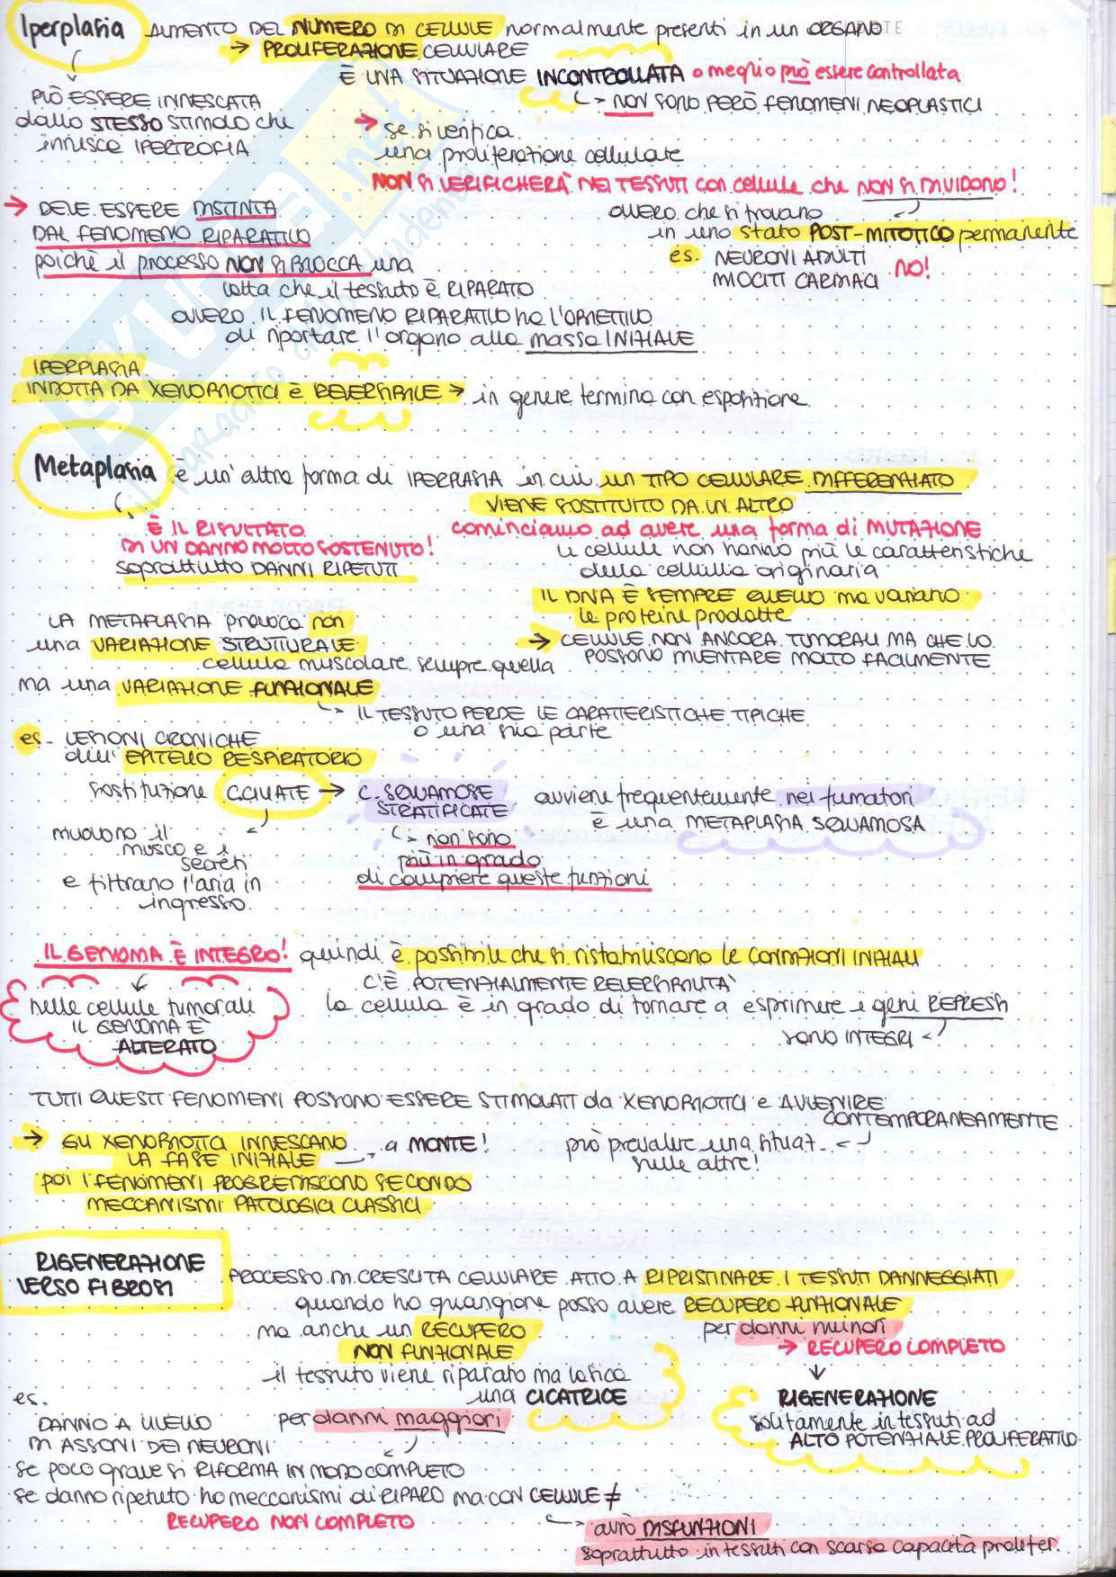 Iperplasia AUMENTO DEL NUMERO DI CELLULE normalmente presenti in un ORGANO
→ PROLIFERAZIONE CELLULARE
È UNA SITUAZIONE INCONTROLLATA o meglio può essere controllata
↳ NON SONO PERÒ FENOMENI NEOPLASTICI
PUÒ ESSERE INNESCATA
dallo STESSO STIMOLO che
innesca IPERTROFIA
→ se si verifica
una proliferazione cellulare
NON SI VERIFICHERÀ NEI TESSUTI con cellule che NON SI DIVIDONO!
ovvero che si trovano
in uno stato POST-MITOTICO permanente
es. NEURONI ADULTI
MIOCITI CARDIACI NO!
→ DEVE ESSERE DISTINTA
DAL FENOMENO RIPARATIVO
poichè il processo NON SI BLOCCA una
volta che il tessuto è RIPARATO
OVVERO IL FENOMENO RIPARATIVO ha L'OBIETTIVO
di riportare l'organo alla massa INIZIALE
IPERPLASIA
INDOTTA DA XENOBIOTICI È REVERSIBILE → in genere termina con esposizione
Metaplasia è un'altra forma di IPERPLASIA in cui un TIPO CELLULARE DIFFERENZIATO
VIENE SOSTITUITO DA UN ALTRO
È IL RISULTATO
DI UN DANNO MOLTO SOSTENUTO!
soprattutto DANNI RIPETUTI
cominciamo ad avere una forma di MUTAZIONE
le cellule non hanno più le caratteristiche
della cellula originaria
IL DNA È SEMPRE QUELLO ma variano
le proteine prodotte
→ CELLULE NON ANCORA TUMORALI MA CHE LO
POSSONO DIVENTARE MOLTO FACILMENTE
LA METAPLASIA provoca non
una VARIAZIONE STRUTTURALE
cellula muscolare sempre quella
ma una VARIAZIONE FUNZIONALE
↳ IL TESSUTO PERDE LE CARATTERISTICHE TIPICHE
o una sua parte
es. LESIONI CRONICHE
dell' EPITELIO RESPIRATORIO
sostituzione C. CILIATE → C. SQUAMOSE
STRATIFICATE
avviene frequentemente nei fumatori
è una METAPLASIA SQUAMOSA
muovono il
musco e i
secreti
e filtrano l'aria in
ingresso
↳ non sono
più in grado
di compiere queste funzioni
IL GENOMA È INTEGRO! quindi è possibile che si ristabiliscano le CONDIZIONI INIZIALI
C'È POTENZIALMENTE REVERSIBILITÀ
la cellula è in grado di tornare a esprimere i geni REPRESSI
SONO INTEGRI
nelle cellule tumorali
IL GENOMA È
ALTERATO
TUTTI QUESTI FENOMENI POSSONO ESSERE STIMOLATI da XENOBIOTICI e AVVENIRE
CONTEMPORANEAMENTE
può prevalere una situaz.
sulle altre!
→ GLI XENOBIOTICI INNESCANO
LA FASE INIZIALE → a MONTE!
poi I FENOMENI PROGREDISCONO SECONDO
MECCANISMI PATOLOGICI CLASSICI
RIGENERAZIONE
VERSO FIBROSI
PROCESSO DI CRESCITA CELLULARE ATTO A RIPRISTINARE I TESSUTI DANNEGGIATI
quando ho guarigione posso avere RECUPERO FUNZIONALE
per danni minori
→ RECUPERO COMPLETO
↓
RIGENERAZIONE
solitamente in tessuti ad
ALTO POTENZIALE PROLIFERATIVO
ma anche un RECUPERO
NON FUNZIONALE
il tessuto viene riparato ma lascia
una CICATRICE
per danni maggiori
es.
DANNO A LIVELLO
DI ASSONI DEI NEURONI
se poco grave si RIFORMA IN MODO COMPLETO
se danno ripetuto ho meccanismi di RIPARO ma CON CELLULE ≠
RECUPERO NON COMPLETO
↳ avrò DISFUNZIONI
soprattutto in tessuti con scarsa capacità prolifer.
SKUOLA.net
il paradiso dello studente